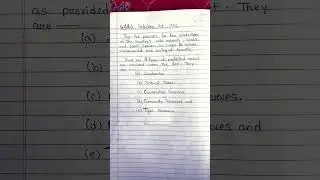 Wildlife Protection Act, 1972
This Act provides for the protection
of the country's wild animals, birds
and plant species, in order to ensure
environmental and ecological security.
There are 5 types of protected areas
as provided under the Act. They
are -
(a) Sanctuaries
(b) National Parks
(c) Conservation Reserves
(d) Community Reserves and
(e) Tiger Reserves